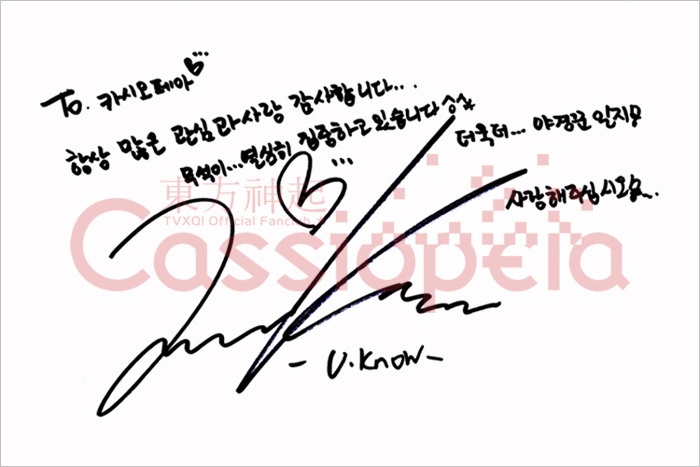 To. 카시오페아
항상 많은 관심과 사랑 감사합니다...
묵석이...열심히 집중하고 있습니다
더욱더...
사랑해주십시오
東方神起
TVXQ! Official Fanclub
Cassiopeia
- U.Know -